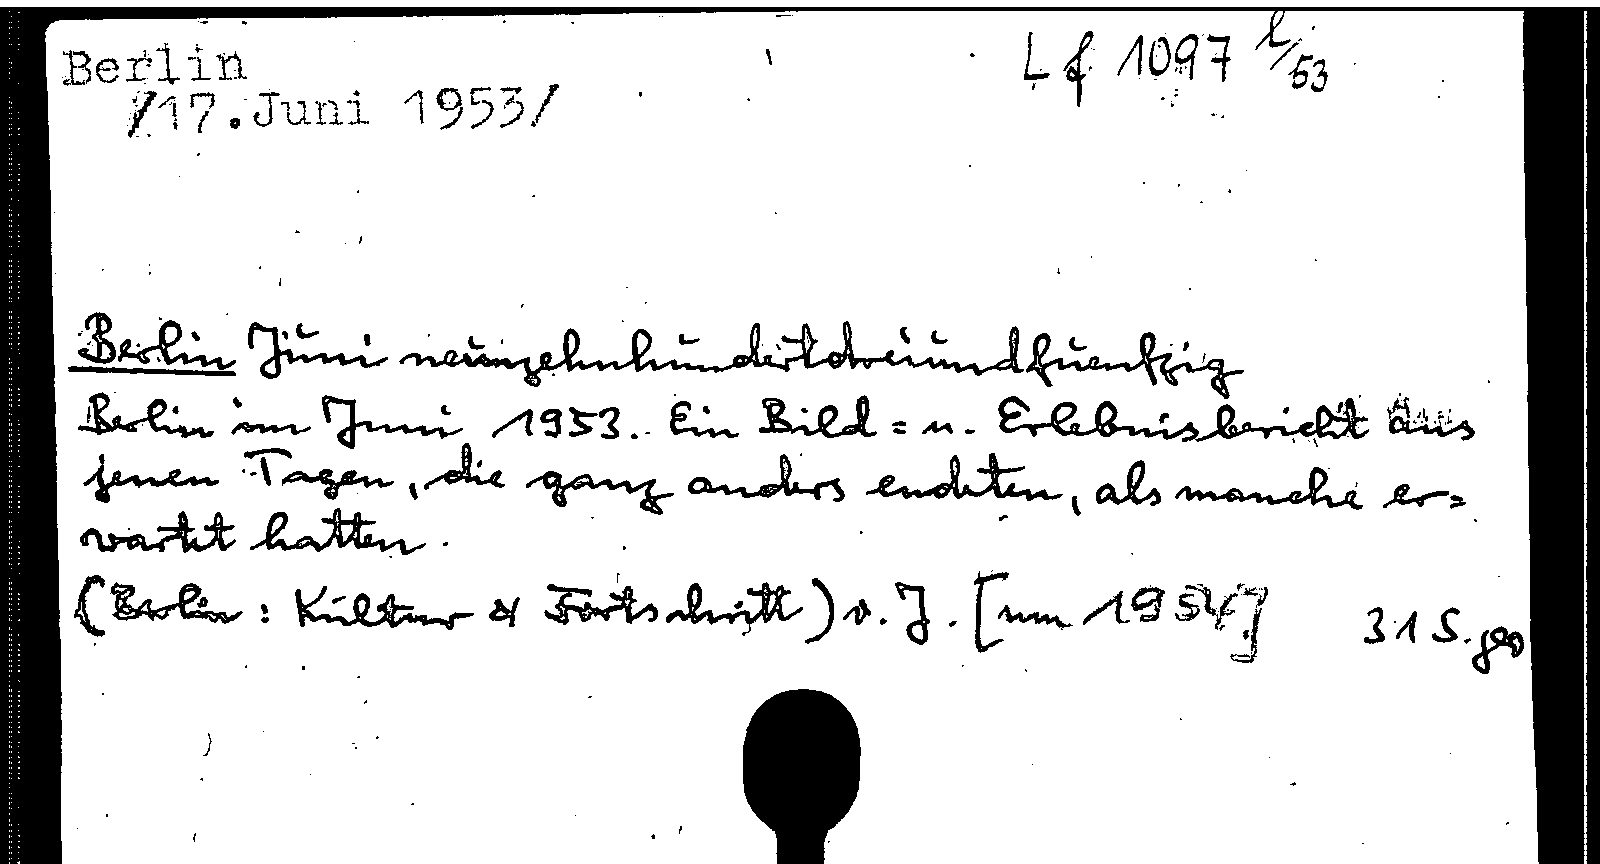 Berlin
/17.Juni 1953/
L f 1097 l/53
Berlin Juni neunzehnhundertdreiundfuenfzig
Berlin im Juni 1953. Ein Bild= u. Erlebnisbericht aus
jenen Tagen, die ganz anders endeten, als manche er=
wartet hatten.
(Berlin: Kultur & Fortschritt) o. J. [um 1954]
31 S.